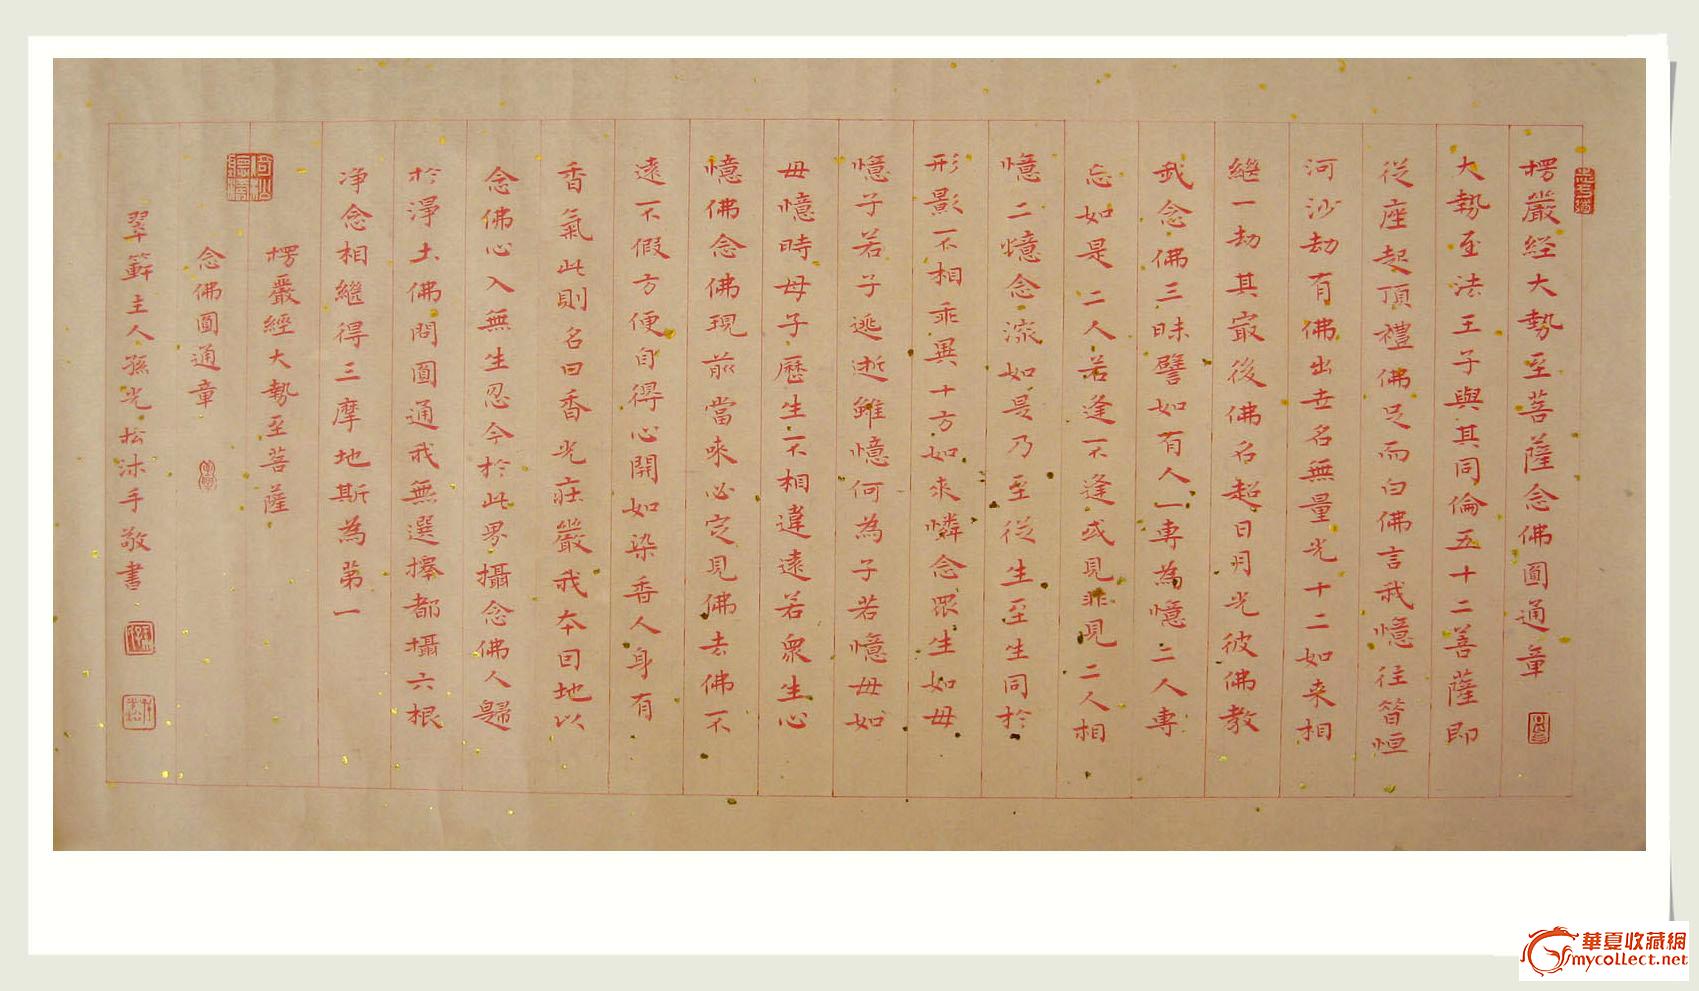 楞嚴经大勢至菩薩念佛圓通章
大勢至法王子與其同倫五十二菩薩即
從座起頂禮佛足而白佛言我憶往昔恒
河沙劫有佛出世名無量光十二如来相
繼一劫其最後佛名超日月光彼佛教
我念佛三昧譬如有人一專為憶二人專
忘如是二人若逢不逢或見非見二人相
憶二憶念深如是乃至從生至生同於
形影不相乖異十方如来憐念眾生如母
憶子若子逃逝雖憶何為子若憶母如
母憶時母子歷生不相違遠若眾生心
憶佛念佛現前當來必定見佛去佛不
遠不假方便自得心開如染香人身有
香氣此則名曰香光莊嚴我本因地以
念佛心入無生忍今於此界攝念佛人歸
於淨土佛問圓通我無選擇都攝六根
净念相繼得三摩地斯為第一
楞嚴經大勢至菩薩
念佛圓通章
翠簃主人孫光松沐手敬書
華夏收藏網
mycollect.net